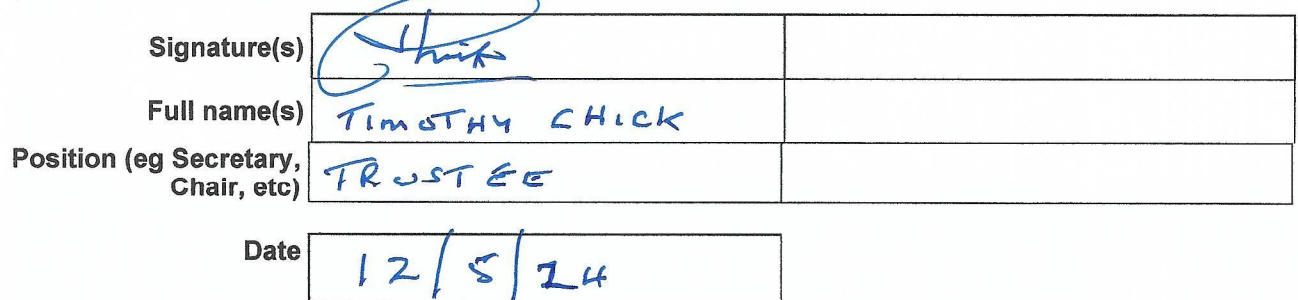 Signature(s)
Full name(s) TIMOTHY CHICK
Position (eg Secretary, Chair, etc) TRUSTEE
Date 12/5/24